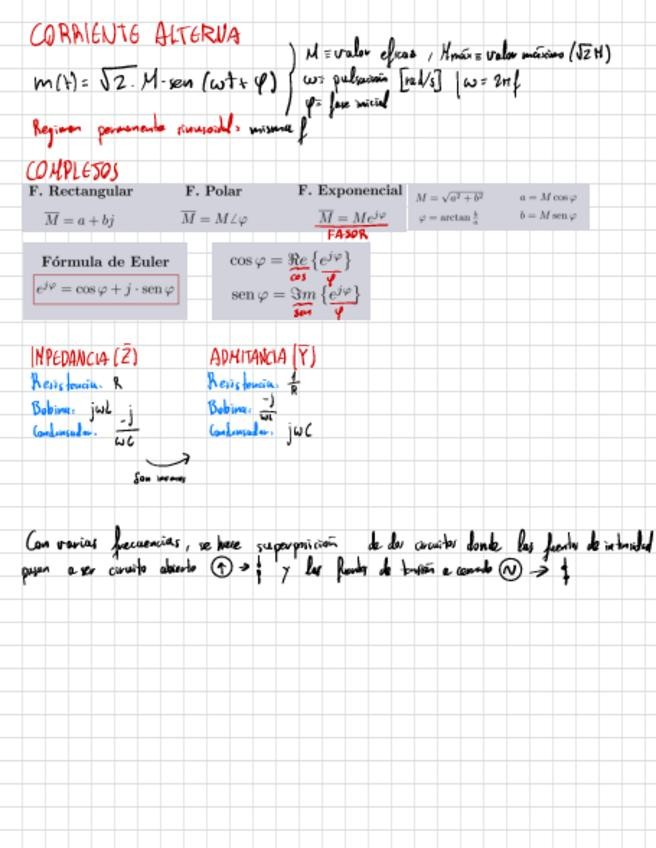 CORRIENTE ALTERNA
m(t) = √2 · M · sen (ωt + φ)
M ≡ valor eficaz, Mmáx ≡ valor máximo (√2 M)
ω ≡ pulsación [rad/s] | ω = 2πf
φ = fase inicial
Regimen permanente sinusoidal: misma f
COMPLEJOS
F. Rectangular F. Polar F. Exponencial
M = √a² + b² a = M cos φ
M̅ = a + bj M̅ = M∠φ M̅ = Me^jφ
φ = arctan b/a b = M sen φ
FASOR
Fórmula de Euler
e^jφ = cos φ + j · sen φ
cos φ = ℜe {e^jφ}
cos φ
sen φ = ℑm {e^jφ}
sen φ
IMPEDANCIA (Z̅) ADMITANCIA (Y̅)
Resistencia: R Resistencia: 1/R
Bobina: jωL Bobina: -j/ωL
Condensador: -j/ωC Condensador: jωC
Son inversos
Con varias frecuencias, se hace superposición de dos circuitos donde las fuentes de intensidad
pasan a ser circuito abierto ↑ → y las fuentes de tensión a cerrado ~ →